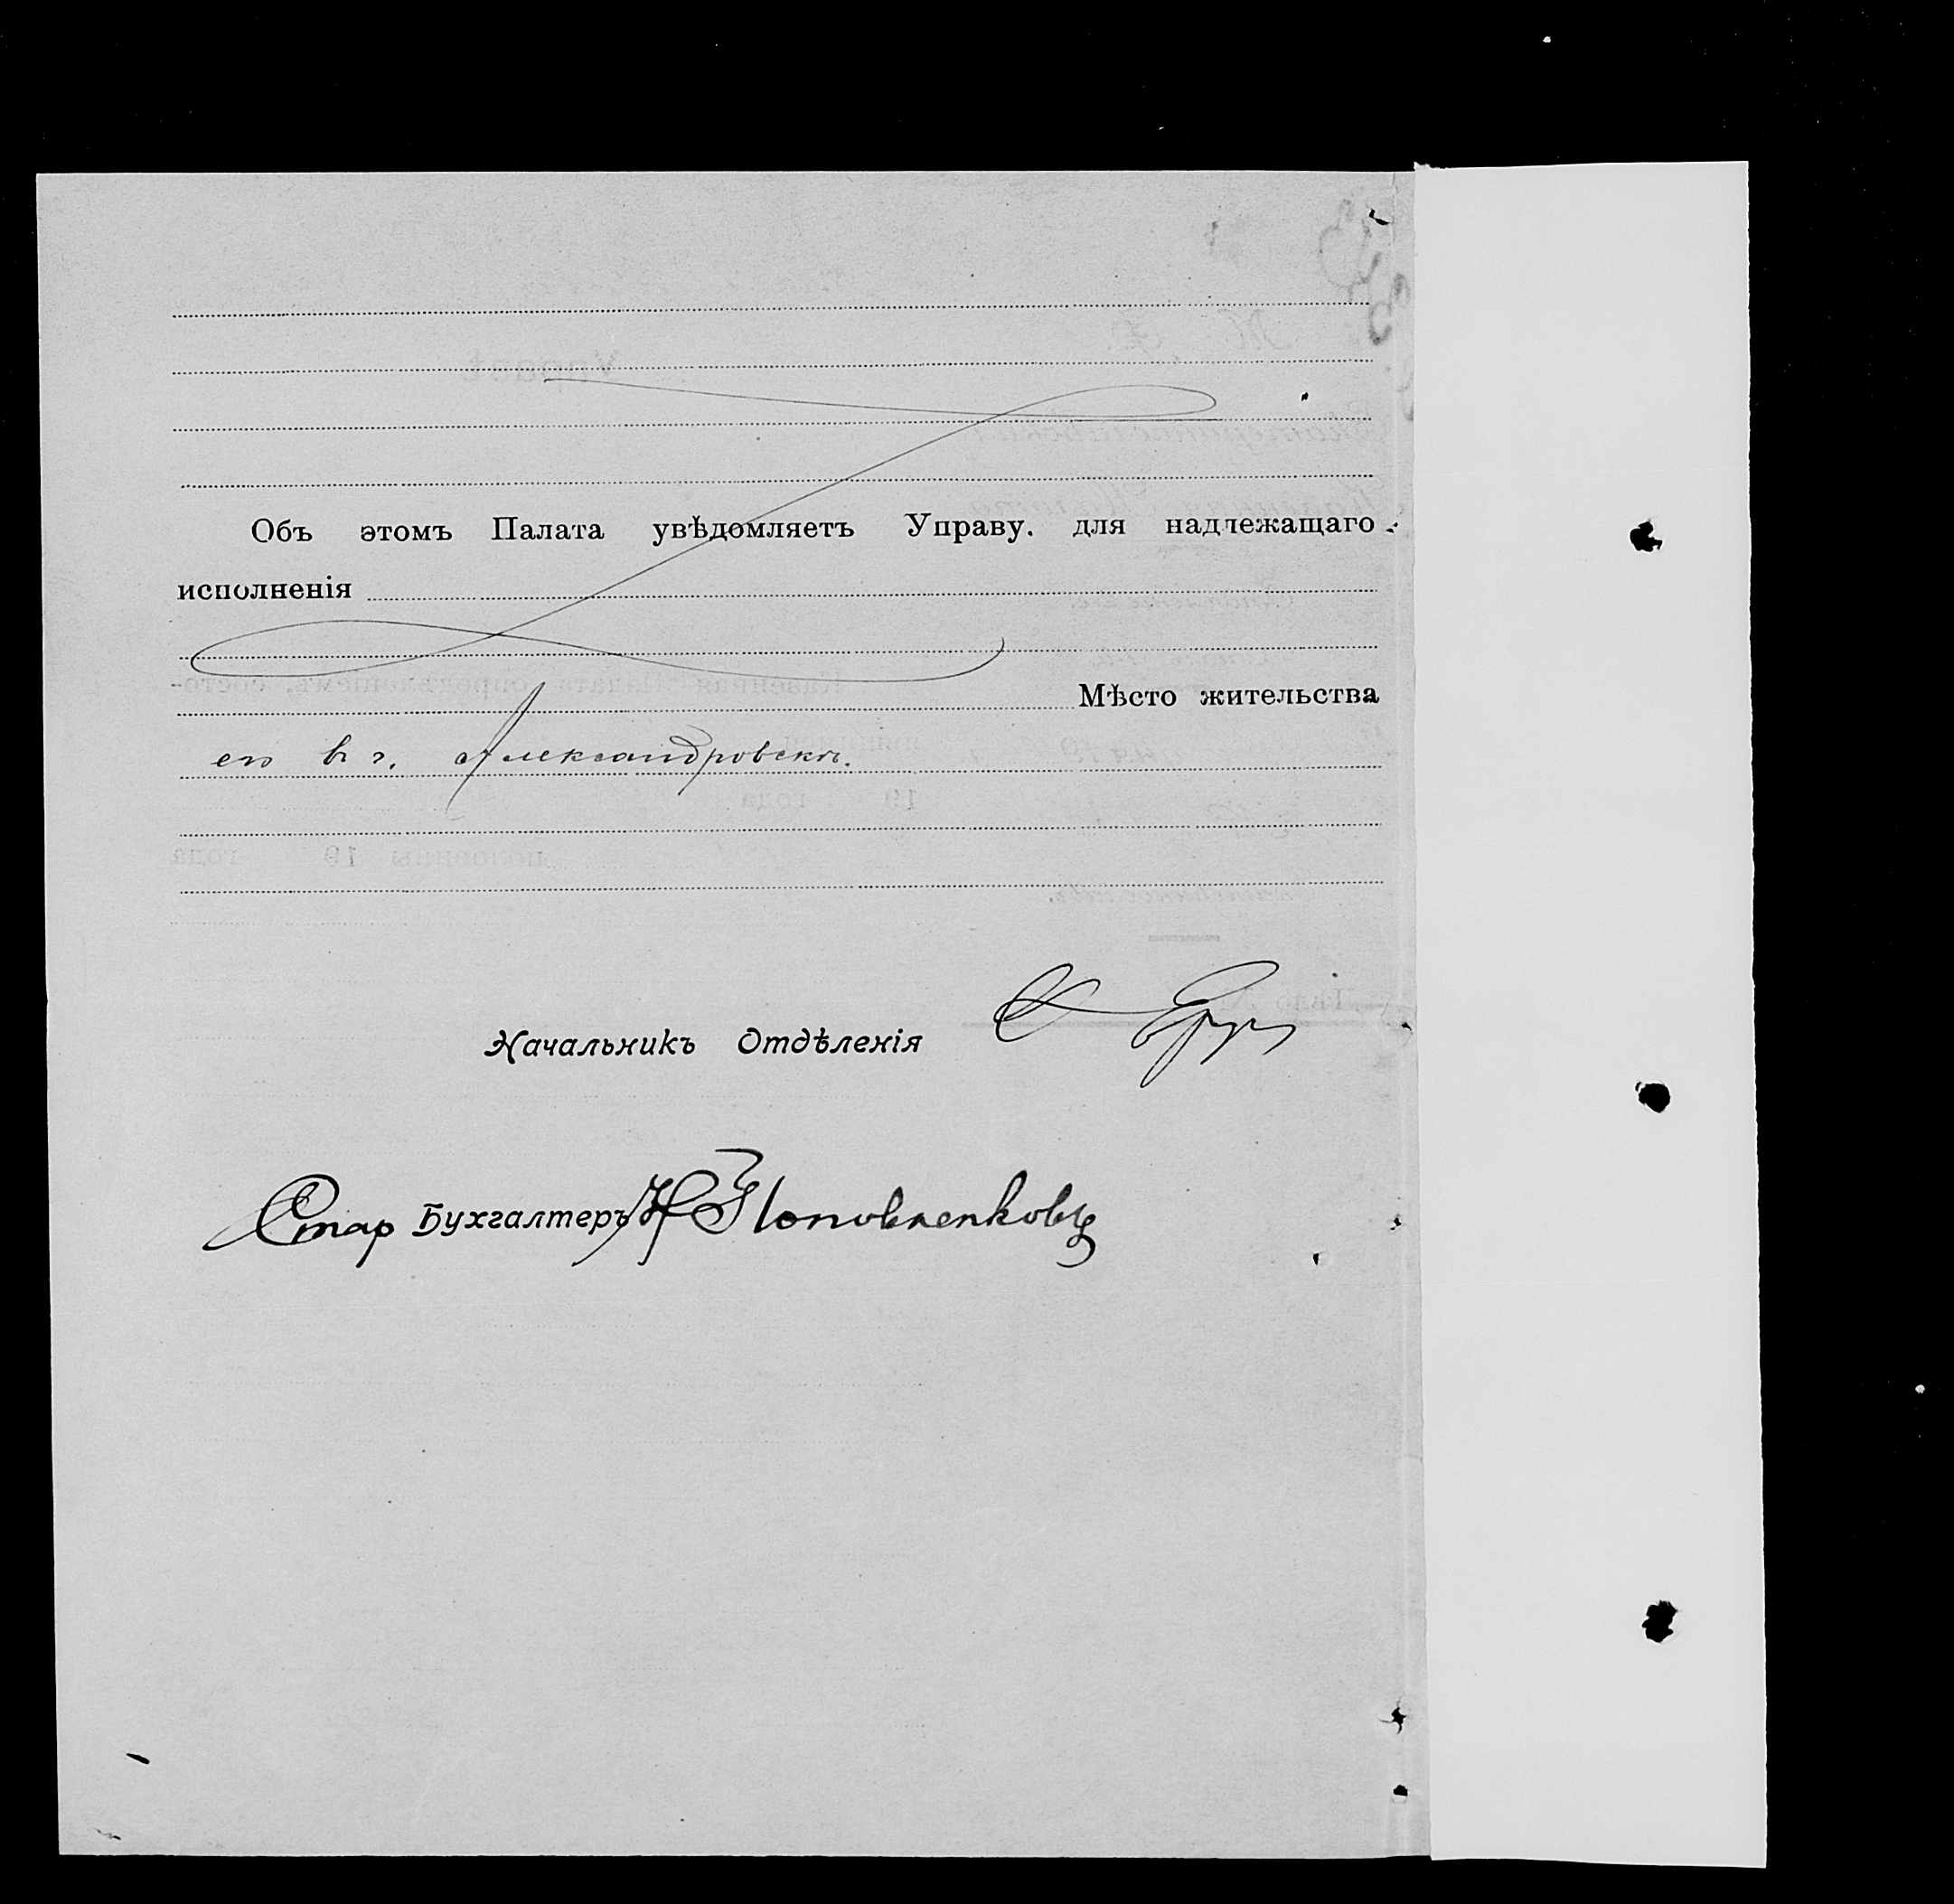 Объ этомъ Палата увѣдомляетъ Управу. для надлежащаго
исполненія
Мѣсто жительства
его въ г. Александровскѣ.
Начальникъ Отдѣленія
Стар Бухгалтеръ